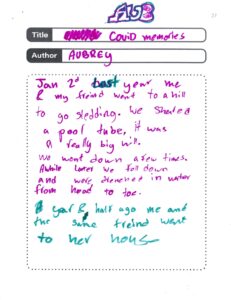 AUB
Title Covid memories
Author AUBREY
Jan 2nd last year me
& my freind went to a hill
to go sledding. we shared
a pool tube, it was
a really big hill.
we went down a few times.
Awhile later we fell down
and were drenched in water
from head to toe.
A year & half ago me and
the same freind went
to her hous